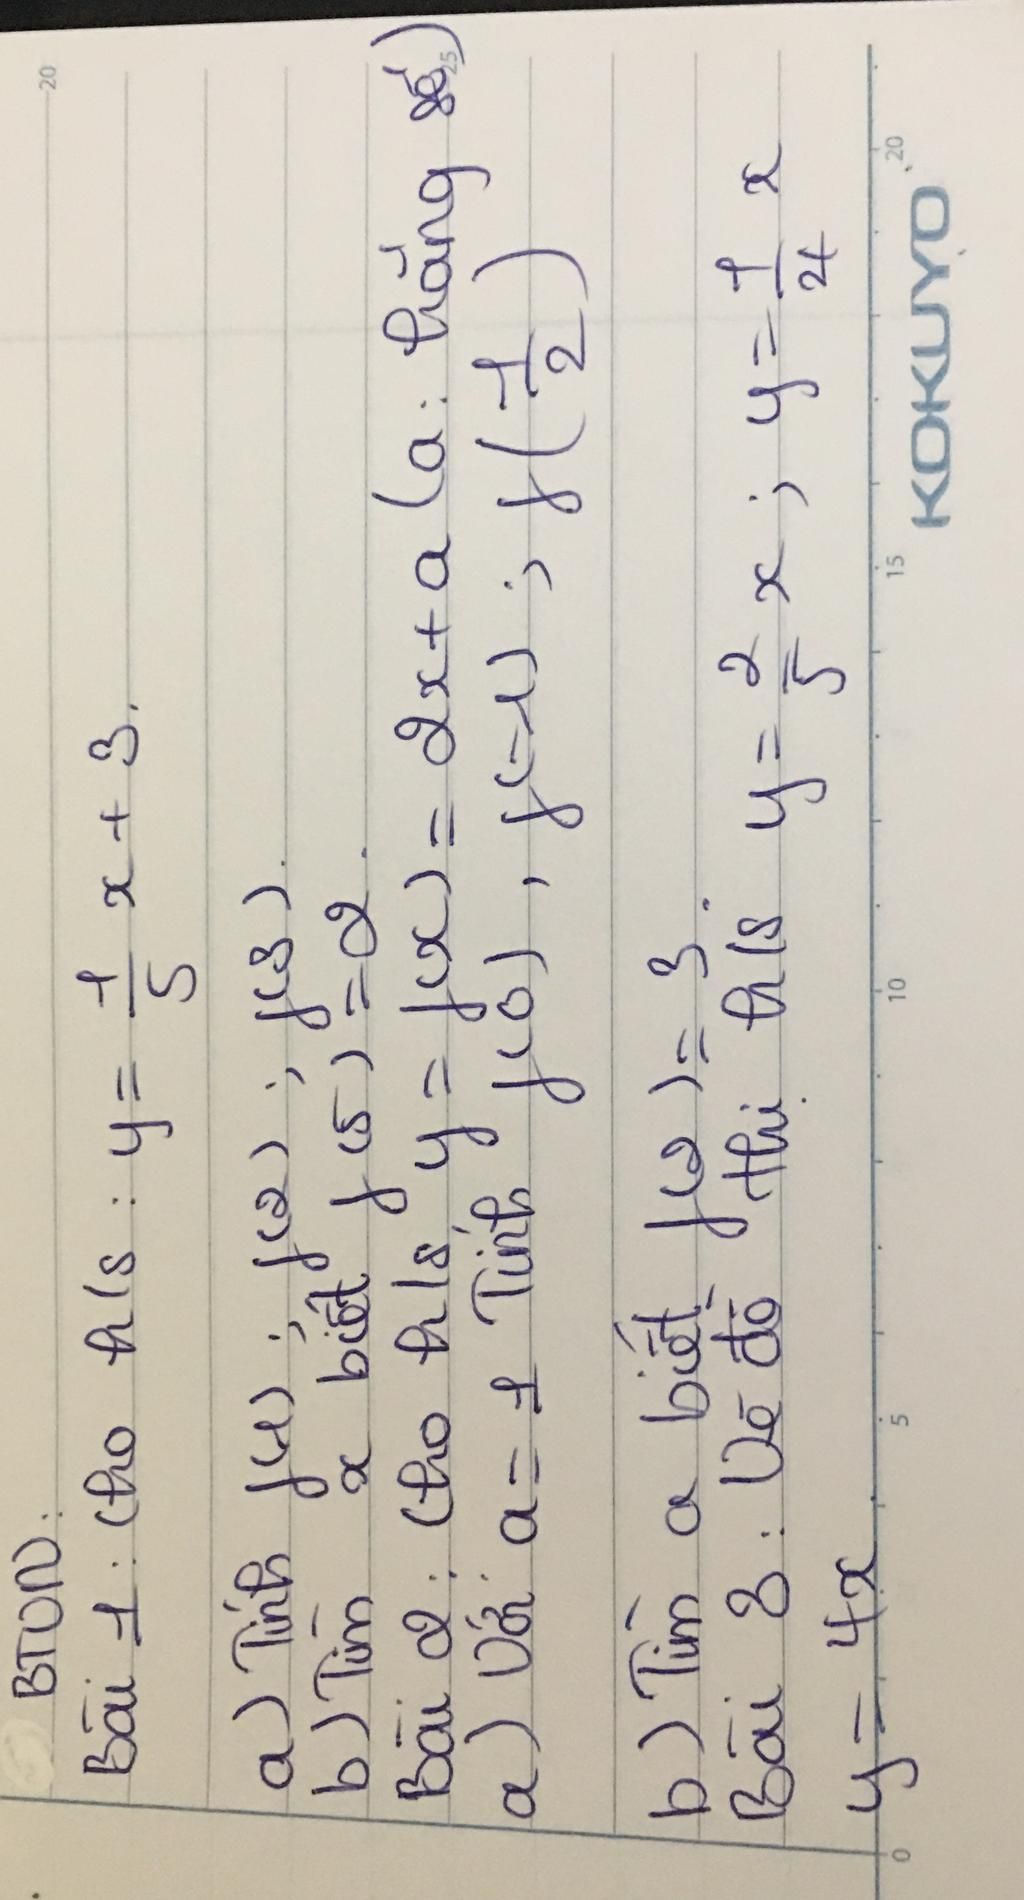 BTVN:
Bài 1: Cho h/s: y = 1/5 x + 3.
a) Tính f(1); f(2); f(3).
b) Tìm x biết f(5) = 2.
Bài 2: Cho h/s y = f(x) = 2x + a (a: hằng số)
a) Với a = 1 Tính f(0), f(-1); f(1/2)
b) Tìm a biết f(2) = 3.
Bài 3: Vẽ đồ thị h/s y = 2/5 x; y = 1/4 x
y = 4x
KOKUYO
0 5 10 15 20
20 25